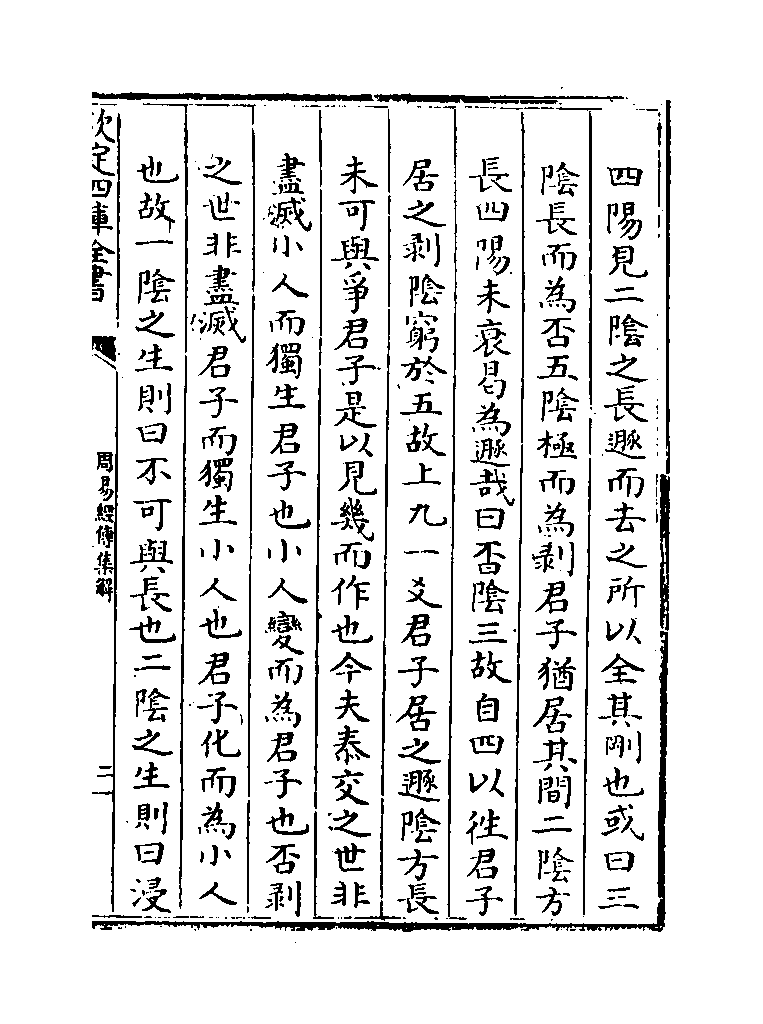 四陽見二陰之長遯而去之所以全其剛也或曰三
陰長而為否五陰極而為剥君子猶居其間二陰方
長四陽未衰曷為遯哉曰否陰三故自四以徃君子
居之剥陰窮於五故上九一爻君子居之遯陰方長
未可與爭君子是以見幾而作也今夫泰交之世非
盡滅小人而獨生君子也小人變而為君子也否剥
之世非盡滅君子而獨生小人也君子化而為小人
也故一陰之生則曰不可與長也二陰之生則曰浸
欽定四庫全書
周易經傳集解
三一